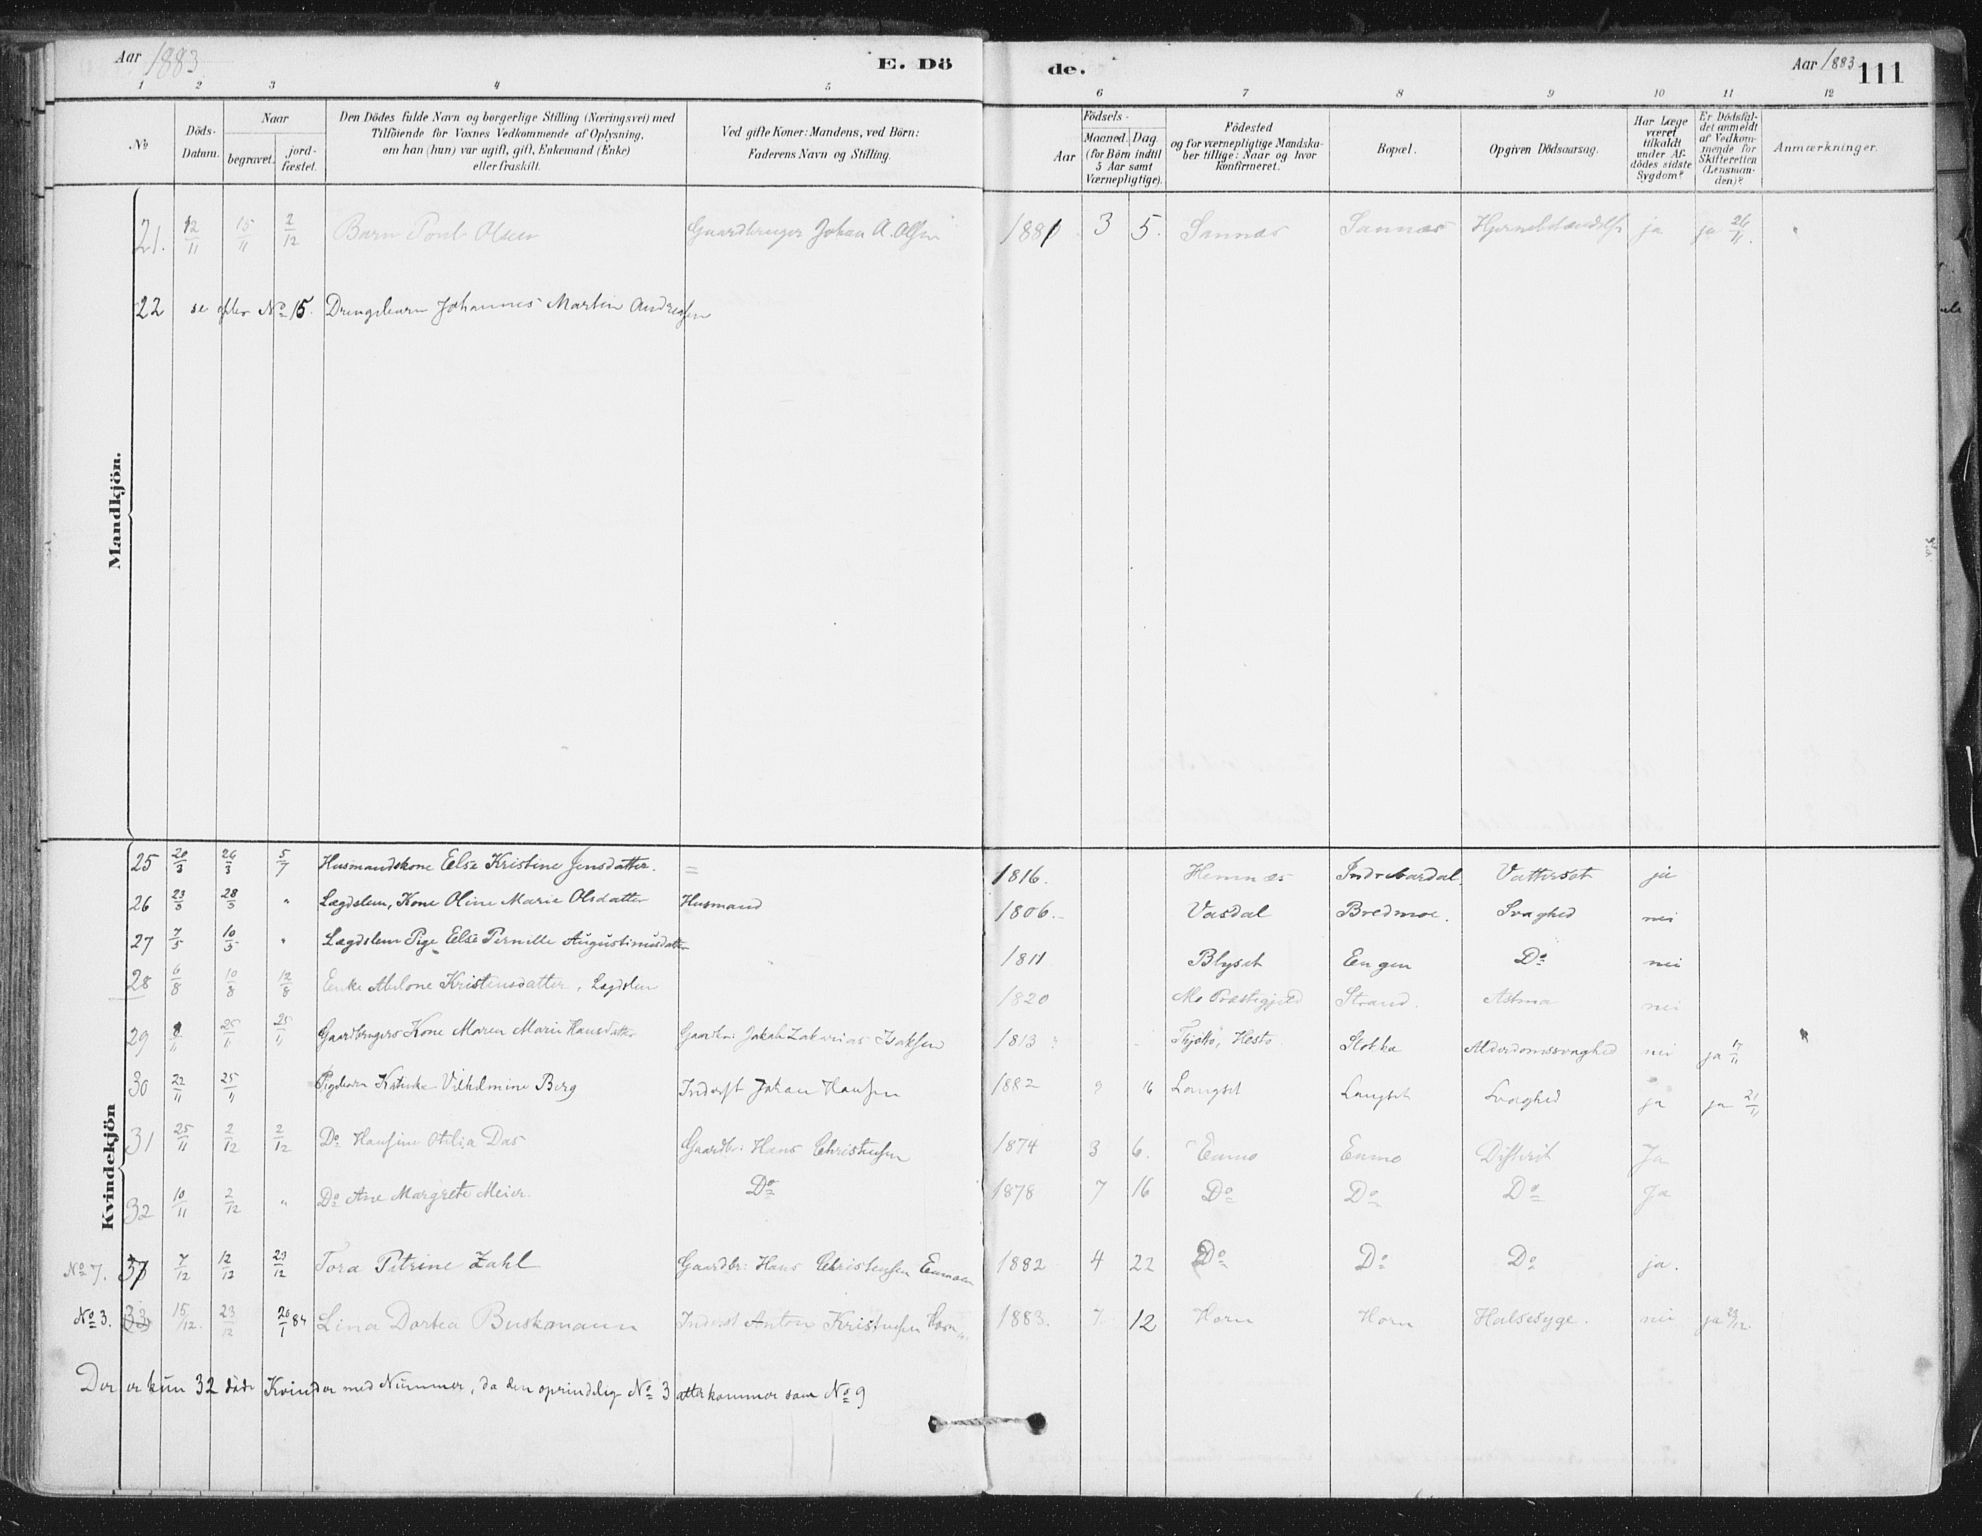 Aar 1883
E. Dö
de.
Aar 1883
111
1 2 3 4 5 6 7 8 9 10 11 12
№
Döds-
Datum.
Naar
begravet.
jord-
fæstet.
Den Dödes fulde Navn og borgerlige Stilling (Næringsvei) med
Tilföiende for Voxnes Vedkommende af Oplysning,
om han (hun) var ugift, gift, Enkemand (Enke)
eller fraskilt.
Ved gifte Koner: Mandens, ved Börn:
Faderens Navn og Stilling.
Födsels-
Aar
Maaned. Dag
(for Börn indtil
5 Aar samt
Værnepligtige).
Födested
og for værnepligtige Mandska-
ber tillige: Naar og hvor
konfirmeret.
Bopæl.
Opgiven Dödsaarsag.
Har Læge
været
tilkaldt
under Af-
dödes sidste
Sygdom?
Er Dödsfal-
det anmeldt
af Vedkom-
mende for
Skifteretten
(Lensman-
den)?
Anmærkninger.
Mandkjön.
21. 12/11 15/11 2/12 Barn Poul Olsen Gaardbruger Johan A. Olsen 1881 3 5. Sannæs Sannæs ja ja 26/11.
22 se efter No 15. Drengebarn Johannes Martin Andresen
Kvindekjön
25 20/3 26/3 5/7 Husmandskone Else Kristine Jensdatter. = 1816. Hemnæs Indrebardal. Vattersot ja
26 23/3 28/3 " Lægdslem, Kone Oline Marie Olsdatter Husmand 1806. Vasdal Bredmoe. Svaghed nei
27 7/5 10/5 " Lægdslem Pige Else Pernille Augustinusdatter 1811 Blyset Engen Do nei
28 6/8 10/8 12/8 Enke Abelone Kristensdatter, Lægdslem 1820 Mo Præstegjeld Strand. Astma nei
29 25/11 25/11 Gaardbrugers Kone Maren Marie Hansdatter Gaardbr: Jakob Zakarias Isaksen 1813 Thjøtø, Hestø Slokka Alderdomssvaghed nei ja 17/11
30 22/11 25/11 Pigebarn Vilhelmine Berg Inderst Johan Hansen 1882 9 16 Langset Langset Svaghed ja ja 21/11
31 25/11 2/12 2/12 Do Hansine Otilia Das Gaardbr: Hans Christensen 1874 3 6. Enmo Enmo Difterit Ja
32 10/11 2/12 " Do Ane Margrete Meier. Do 1878 7 16 Do Do Do Ja
No 7. 7/12 12/12 29/12 Tora Petrine Zahl Gaardbr: Hans Christensen Enmoen 1882 4 22 Do Do Do ja.
No 3. 33 15/12. 23/12 20/1 84 Lina Dortea Buskmann Inderst Anton Kristensen Horn 1883. 7 12 Horn Horn Halsesyge. nei ja 23/12.
Der er kun 32 døde Kvinder med Nummer, da den oprindelig No 3 atter kommer som No 9